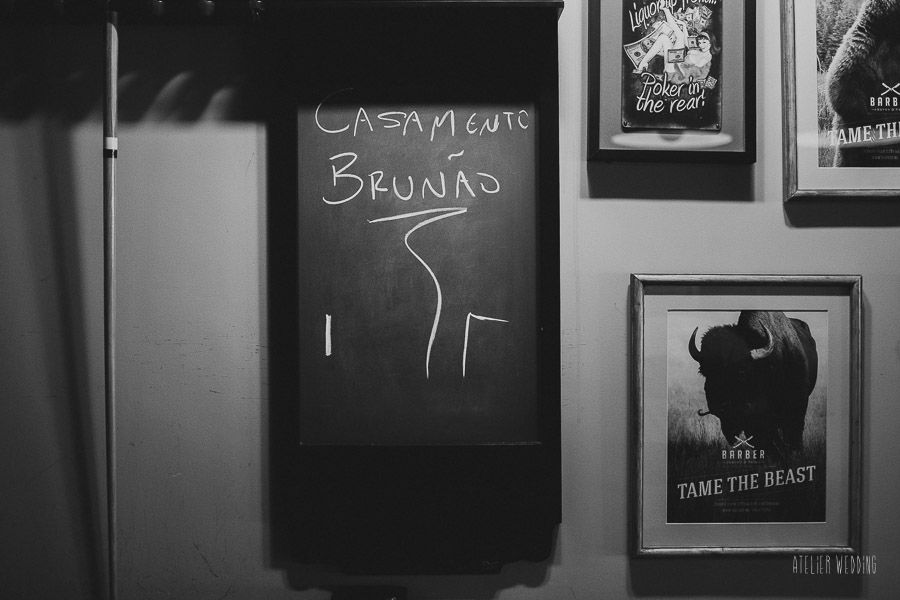 CASAMENTO
BRUNÃO
Liquor up front...
Poker in
the rear!
BARBER
TAME THE
BARBER
TAME THE BEAST
ATELIER WEDDING